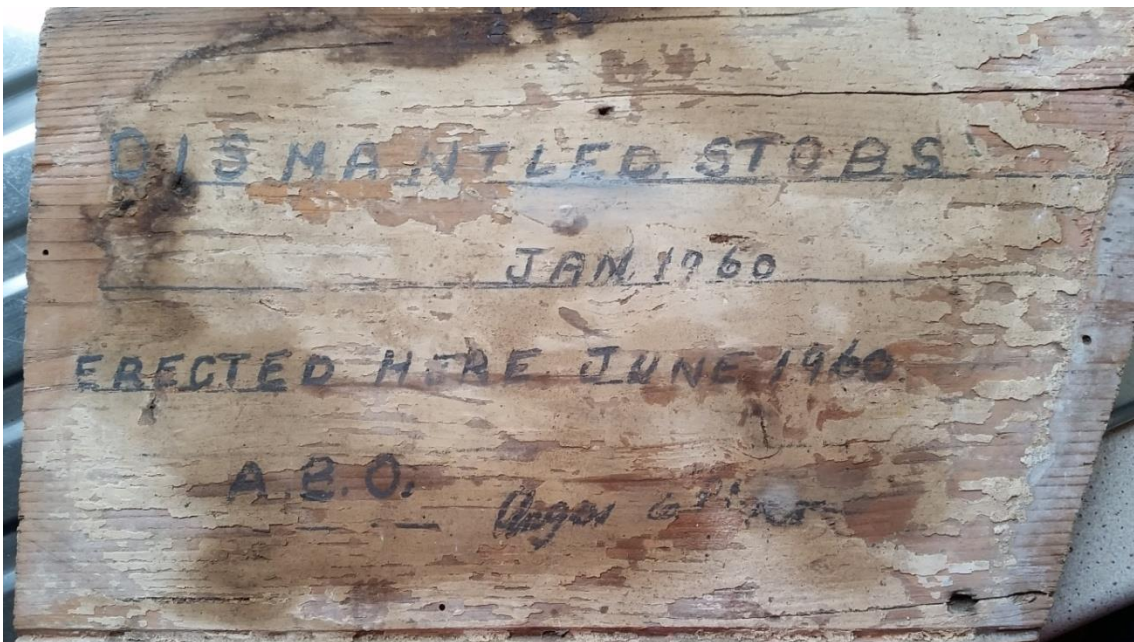 DISMANTLED. STOBS
JAN. 1960
ERECTED HERE JUNE 1960
A.B.O.